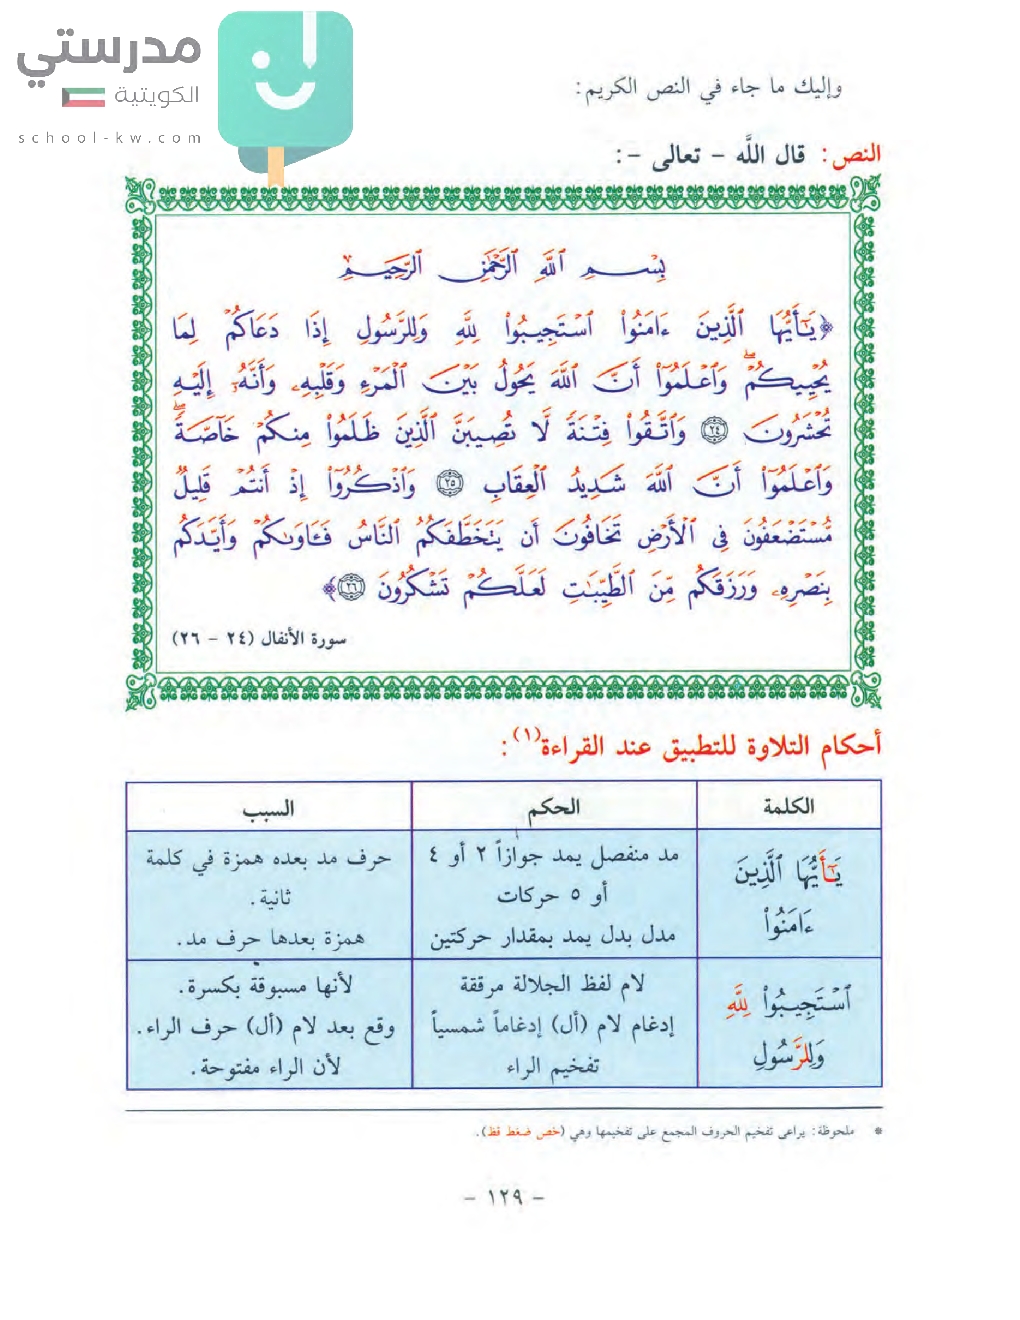 مدرستي
الكويتية
school-kw.com
وإليك ما جاء في النص الكريم:
النص: قال اللَّه - تعالى -:
بِسْمِ ٱللَّهِ ٱلرَّحْمَٰنِ ٱلرَّحِيمِ
﴿يَٰٓأَيُّهَا ٱلَّذِينَ ءَامَنُوا۟ ٱسْتَجِيبُوا۟ لِلَّهِ وَلِلرَّسُولِ إِذَا دَعَاكُمْ لِمَا
يُحْيِيكُمْ ۖ وَٱعْلَمُوٓا۟ أَنَّ ٱللَّهَ يَحُولُ بَيْنَ ٱلْمَرْءِ وَقَلْبِهِۦ وَأَنَّهُۥٓ إِلَيْهِ
تُحْشَرُونَ ۝٢٤ وَٱتَّقُوا۟ فِتْنَةً لَّا تُصِيبَنَّ ٱلَّذِينَ ظَلَمُوا۟ مِنكُمْ خَآصَّةً ۖ
وَٱعْلَمُوٓا۟ أَنَّ ٱللَّهَ شَدِيدُ ٱلْعِقَابِ ۝٢٥ وَٱذْكُرُوٓا۟ إِذْ أَنتُمْ قَلِيلٌ
مُّسْتَضْعَفُونَ فِى ٱلْأَرْضِ تَخَافُونَ أَن يَتَخَطَّفَكُمُ ٱلنَّاسُ فَـَٔاوَىٰكُمْ وَأَيَّدَكُم
بِنَصْرِهِۦ وَرَزَقَكُم مِّنَ ٱلطَّيِّبَٰتِ لَعَلَّكُمْ تَشْكُرُونَ ۝٢٦﴾
سورة الأنفال (٢٤ - ٢٦)
أحكام التلاوة للتطبيق عند القراءة(١):
الكلمة الحكم السبب
يَٰٓأَيُّهَا ٱلَّذِينَ مد منفصل يمد جوازاً ٢ أو ٤ حرف مد بعده همزة في كلمة
أو ٥ حركات ثانية.
ءَامَنُوا۟ مدل بدل يمد بمقدار حركتين همزة بعدها حرف مد.
ٱسْتَجِيبُوا۟ لِلَّهِ لام لفظ الجلالة مرققة لأنها مسبوقة بكسرة.
إدغام لام (أل) إدغاماً شمسياً وقع بعد لام (أل) حرف الراء.
وَلِلرَّسُولِ تفخيم الراء لأن الراء مفتوحة.
* ملحوظة: يراعى تفخيم الحروف المجمع على تفخيمها وهي (خص ضغط قظ).
- ١٢٩ -